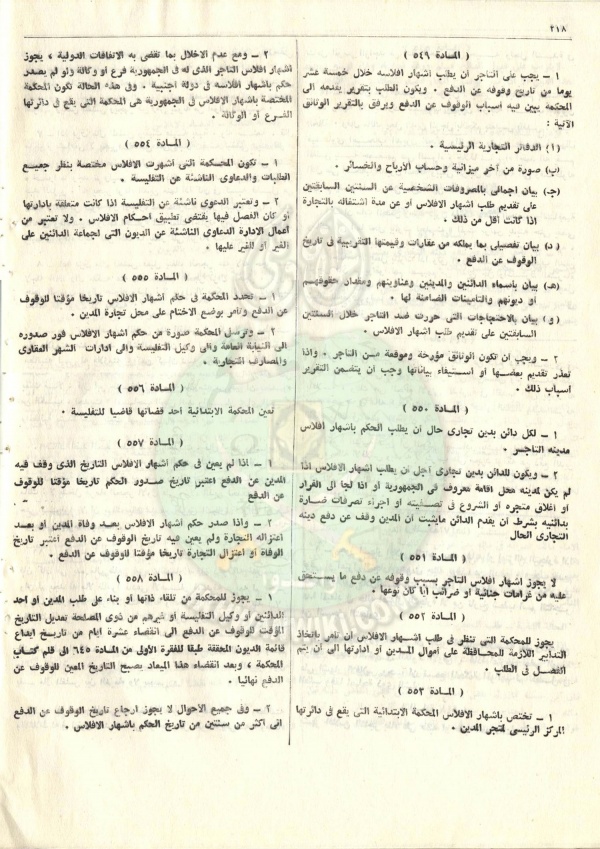 ٢١٨
( المـادة ٥٤٩ )
١ ـ يجب على التاجر أن يطلب اشهار افلاسه خلال خمسة عشر
يوما من تاريخ وقوفه عن الدفع . ويكون الطلب بتقرير يقدمه الى
المحكمة يبين فيه أسباب الوقوف عن الدفع ويرفق بالتقرير الوثائق
الآتية :
(أ) الدفاتر التجارية الرئيسية .
(ب) صورة من آخر ميزانية وحساب الأرباح والخسائر .
(جـ) بيان اجمالى بالمصروفات الشخصية عن السنتين السابقتين
على تقديم طلب اشهار الافلاس أو عن مدة اشتغاله بالتجارة
اذا كانت أقل من ذلك .
( د) بيان تفصيلى بما يملكه من عقارات وقيمتها التقريبية فى تاريخ
الوقوف عن الدفع .
(هـ) بيان بأسماء الدائنين والمدينين وعناوينهم ومقدار حقوقهم
أو ديونهم والتأمينات الضامنة لها .
( و) بيان بالاحتجاجات التى حررت ضد التاجر خلال السنتين
السابقتين على تقديم طلب اشهار الافلاس .
٢ ـ ويجب أن تكون الوثائق مؤرخة وموقعة من التاجر . واذا
تعذر تقديم بعضها أو استيفاء بياناتها وجب أن يتضمن التقرير
أسباب ذلك .
( المـادة ٥٥٠ )
١ ـ لكل دائن بدين تجارى حال أن يطلب الحكم باشهار افلاس
مدينه التاجر .
٢ ـ ويكون للدائن بدين تجارى آجل أن يطلب اشهار الافلاس اذا
لم يكن لمدينه محل اقامة معروف فى الجمهورية أو اذا لجأ الى الفرار
أو اغلاق متجره أو الشروع فى تصفيته أو اجراء تصرفات ضارة
بدائنيه بشرط أن يقدم الدائن مايثبت أن المدين وقف عن دفع دينه
التجارى الحال
( المـادة ٥٥١ )
لا يجوز اشهار افلاس التاجر بسبب وقوفه عن دفع ما يستحق
عليه من غرامات جنائية أو ضرائب أيا كان نوعها .
( المـادة ٥٥٢ )
يجوز للمحكمة التى تنظر فى طلب اشهار الافلاس أن تأمر باتخاذ
التدابير اللازمة للمحافظة على أموال المدين أو ادارتها الى أن يتم
الفصل فى الطلب .
( المـادة ٥٥٣ )
١ ـ تختص باشهار الافلاس المحكمة الابتدائية التى يقع فى دائرتها
المركز الرئيسى لمتجر المدين .
٢ ـ ومع عدم الاخلال بما تقضى به الاتفاقات الدولية ، يجوز
اشهار افلاس التاجر الذى له فى الجمهورية فرع أو وكالة ولو لم يصدر
حكم باشهار افلاسه فى دولة أجنبية . وفى هذه الحالة تكون المحكمة
المختصة باشهار الافلاس فى الجمهورية هى المحكمة التى يقع فى دائرتها
الفرع أو الوكالة .
( المـادة ٥٥٤ )
١ ـ تكون المحكمة التى أشهرت الافلاس مختصة بنظر جميع
الطلبات والدعاوى الناشئة عن التفليسة .
٢ ـ وتعتبر الدعوى ناشئة عن التفليسة اذا كانت متعلقة بادارتها
أو كان الفصل فيها يقتضى تطبيق أحكام الافلاس . ولا تعتبر من
أعمال الادارة الدعاوى الناشئة عن الديون التى لجماعة الدائنين على
الغير أو الغير عليها .
( المـادة ٥٥٥ )
١ ـ تحدد المحكمة فى حكم اشهار الافلاس تاريخا مؤقتا للوقوف
عن الدفع وتأمر بوضع الاختام على محل تجارة المدين .
٢ ـ وترسل المحكمة صورة من حكم اشهار الافلاس فور صدوره
الى النيابة العامة والى وكيل التفليسة والى ادارات الشهر العقارى
والمصارف التجارية .
( المـادة ٥٥٦ )
تعين المحكمة الابتدائية أحد قضاتها قاضيا للتفليسة .
( المـادة ٥٥٧ )
١ ـ اذا لم يعين فى حكم اشهار الافلاس التاريخ الذى وقف فيه
المدين عن الدفع اعتبر تاريخ صدور الحكم تاريخا مؤقتا للوقوف
عن الدفع
٢ ـ واذا صدر حكم اشهار الافلاس بعد وفاة المدين أو بعد
اعتزاله التجارة ولم يعين فيه تاريخ الوقوف عن الدفع اعتبر تاريخ
الوفاة أو اعتزال التجارة تاريخا مؤقتا للوقوف عن الدفع .
( المـادة ٥٥٨ )
١ ـ يجوز للمحكمة من تلقاء ذاتها أو بناء على طلب المدين أو أحد
الدائنين أو وكيل التفليسة أو غيرهم من ذوى المصلحة تعديل التاريخ
المؤقت للوقوف عن الدفع الى انقضاء عشرة أيام من تاريخ ايداع
قائمة الديون المحققة طبقا للفقرة الأولى من المادة ٦٤٥ الى قلم كتاب
المحكمة ، وبعد انقضاء هذا الميعاد يصبح التاريخ المعين للوقوف عن
الدفع نهائيا .
٢ ـ وفى جميع الأحوال لا يجوز ارجاع تاريخ الوقوف عن الدفع
الى أكثر من سنتين من تاريخ الحكم باشهار الافلاس .